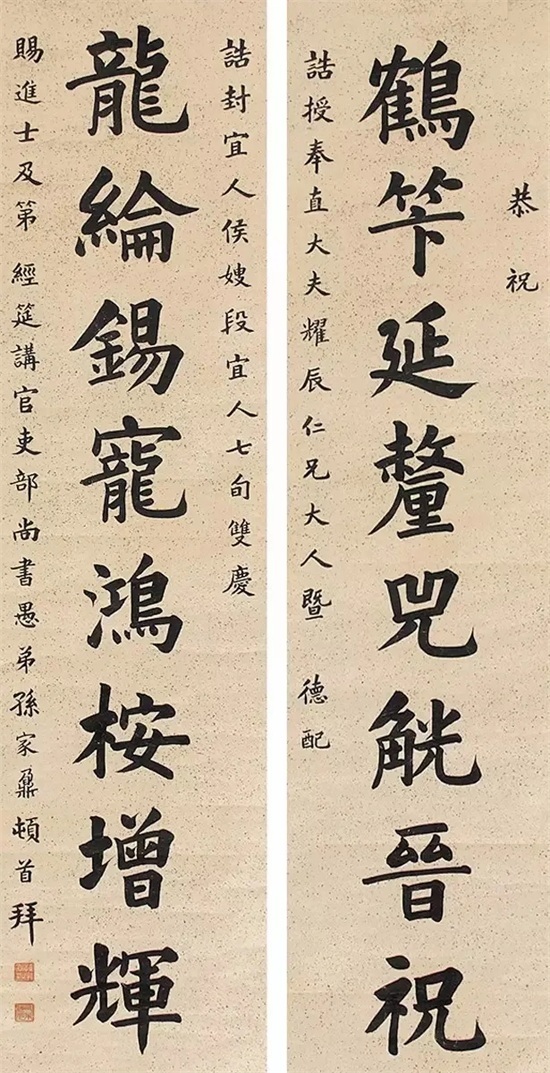 恭祝
鶴筭延釐兕觥晉祝
誥授奉直大夫耀辰仁兄大人暨 德配
誥封宜人侯嫂段宜人七旬雙慶
龍綸錫寵鴻桉增輝
賜進士及第 經筵講官吏部尚書愚弟孫家鼐頓首拜